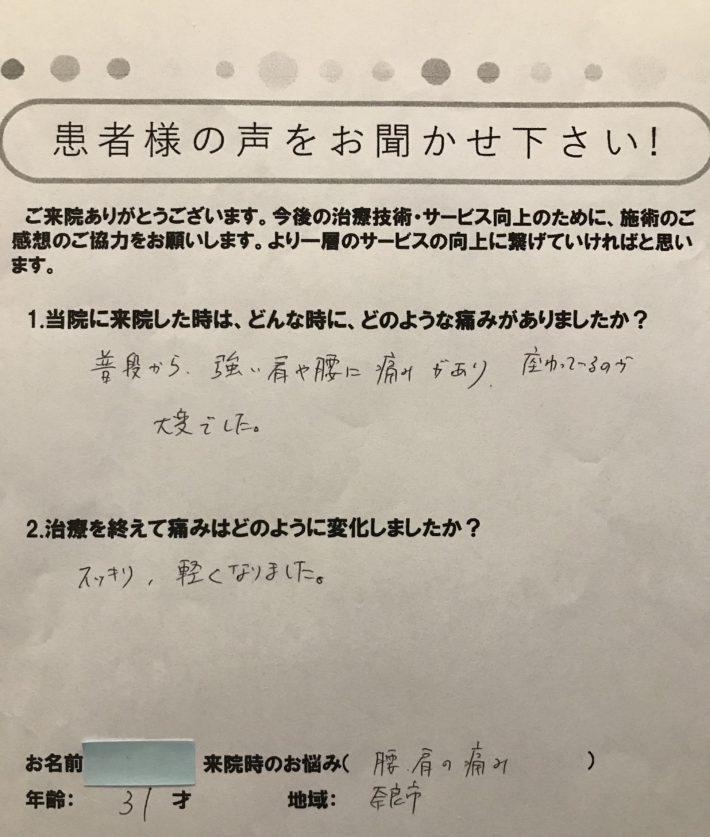 患者様の声をお聞かせ下さい!
ご来院ありがとうございます。今後の治療技術・サービス向上のために、施術のご
感想のご協力をお願いします。より一層のサービスの向上に繋げていければと思い
ます。
1.当院に来院した時は、どんな時に、どのような痛みがありましたか?
普段から、強い肩や腰に痛みがあり、座わっているのが
大変でした。
2.治療を終えて痛みはどのように変化しましたか?
スッキリ、軽くなりました。
お名前 来院時のお悩み( 腰、肩の痛み )
年齢: 31 才 地域: 奈良市